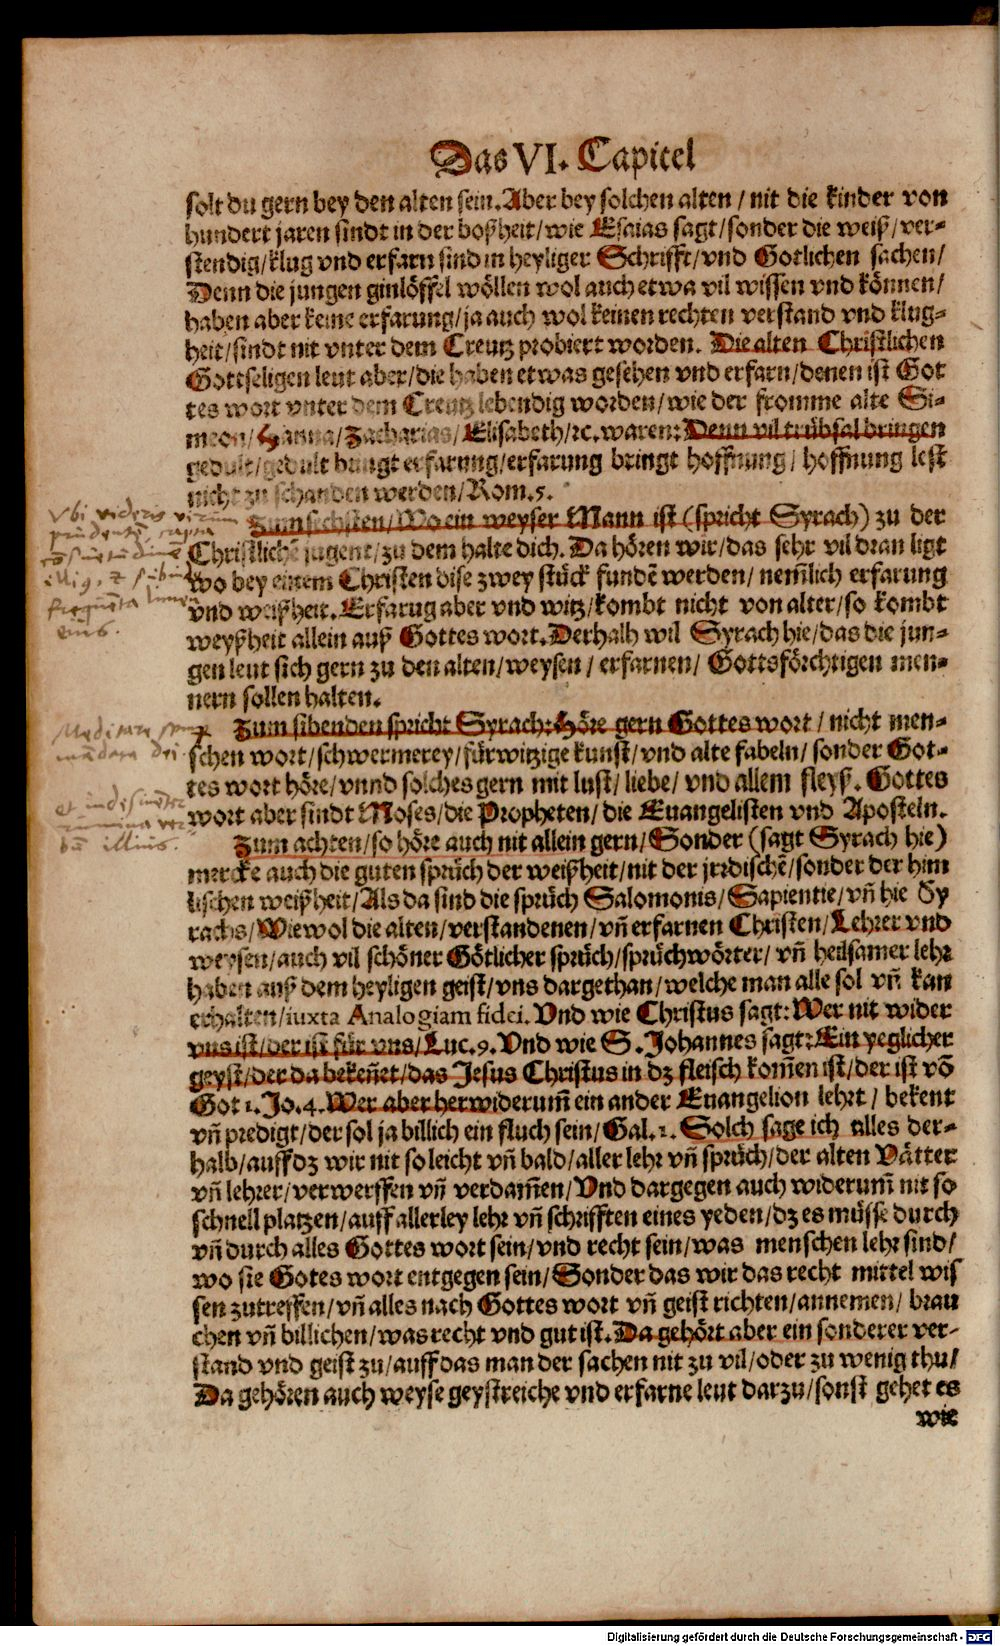 Das VI. Capitel
solt du gern bey den alten sein. Aber bey solchen alten / nit die kinder von
hundert jaren sindt in der boßheit/ wie Esaias sagt/ sonder die weiß/ ver-
stendig/ klug vnd erfarn sind in heyliger Schrifft/ vnd Gotlichen sachen/
Denn die jungen ginlöffel wöllen wol auch etwa vil wissen vnd können/
haben aber keine erfarung/ ja auch wol keinen rechten verstand vnd klug-
heit/ sindt nit vnter dem Creutz probiert worden. Die alten Christlichen
Gottseligen leut aber/ die haben etwas gesehen vnd erfarn/ denen ist Got
tes wort vnter dem Creutz lebendig worden/ wie der fromme alte Si-
meon/ Hanna/ Zacharias/ Elisabeth/ ꝛc. waren: Denn vil trübsal bringen
gedult/ gedult bringt erfarung/ erfarung bringt hoffnung / hoffnung lest
nicht zu schanden werden/ Rom. 5.
Zum sechsten/ Wo ein weyser Mann ist (spricht Syrach) zu der
Christlichē jugent/ zu dem halte dich. Da hören wir/ das sehr vil dran ligt
wo bey einem Christen dise zwey stück fundē werden/ nem̄lich erfarung
vnd weißheit. Erfarug aber vnd witz/ kombt nicht von alter/ so kombt
weyßheit allein auß Gottes wort. Derhalb wil Syrach hie/ das die jun-
gen leut sich gern zu den alten/ weysen / erfarnen/ Gottsförchtigen men-
nern sollen halten.
Vbi videris virum
prudentē,
illiq, &
eius.
Zum sibenden spricht Syrach: Höre gern Gottes wort / nicht men-
schen wort/ schwermerey/ fürwitzige kunst/ vnd alte fabeln/ sonder Got-
tes wort höre/ vnnd solches gern mit lust/ liebe/ vnd allem fleyß. Gottes
wort aber sindt Moses/ die Propheten/ die Euangelisten vnd Aposteln.
Meditare semp
mādata dei
Zum achten/ so höre auch nit allein gern/ Sonder (sagt Syrach hie)
mercke auch die guten sprüch der weißheit/ nit der jrrdischē/ sonder der him
lischen weißheit/ Als da sind die sprüch Salomonis/ Sapientie/ vn̄ hie Sy
rachs/ Wiewol die alten/ verstandenen/ vn̄ erfarnen Christen/ Lehrer vnd
weysen/ auch vil schöner Götlicher sprüch/ sprüchwörter/ vn̄ heilsamer lehr
haben auß dem heyligen geist/ vns dargethan/ welche man alle sol vn̄ kan
erhalten/ iuxta Analogiam fidei. Vnd wie Christus sagt: Wer nit wider
vns ist/ der ist für vns/ Luc. 9. Vnd wie S. Johannes sagt: Ein yeglicher
geyst/ der da beken̄et/ das Jesus Christus in dz fleisch kom̄en ist/ der ist vō
Got 1. Jo. 4. Wer aber herwiderum̄ ein ander Euangelion lehrt / bekent
vn̄ predigt/ der sol ja billich ein fluch sein/ Gal. 1. Solch sage ich alles der-
halb/ auff dz wir nit so leicht vn̄ bald/ aller lehr vn̄ sprüch/ der alten Vätter
vn̄ lehrer/ verwerffen vn̄ verdam̄en/ Vnd dargegen auch widerum̄ nit so
schnell platzen/ auff allerley lehr vn̄ schrifften eines yeden/ dz es müsse durch
vn̄ durch alles Gottes wort sein/ vnd recht sein/ was menschen lehr sind/
wo sie Gotes wort entgegen sein/ Sonder das wir das recht mittel wis
sen zutreffen/ vn̄ alles nach Gottes wort vn̄ geist richten/ annemen/ brau
chen vn̄ billichen/ was recht vnd gut ist. Da gehört aber ein sonderer ver-
stand vnd geist zu/ auff das man der sachen nit zu vil/ oder zu wenig thu/
Da gehören auch weyse geystreiche vnd erfarne leut darzu/ sonst gehet es
wie
Digitalisierung gefördert durch die Deutsche Forschungsgemeinschaft - DFG